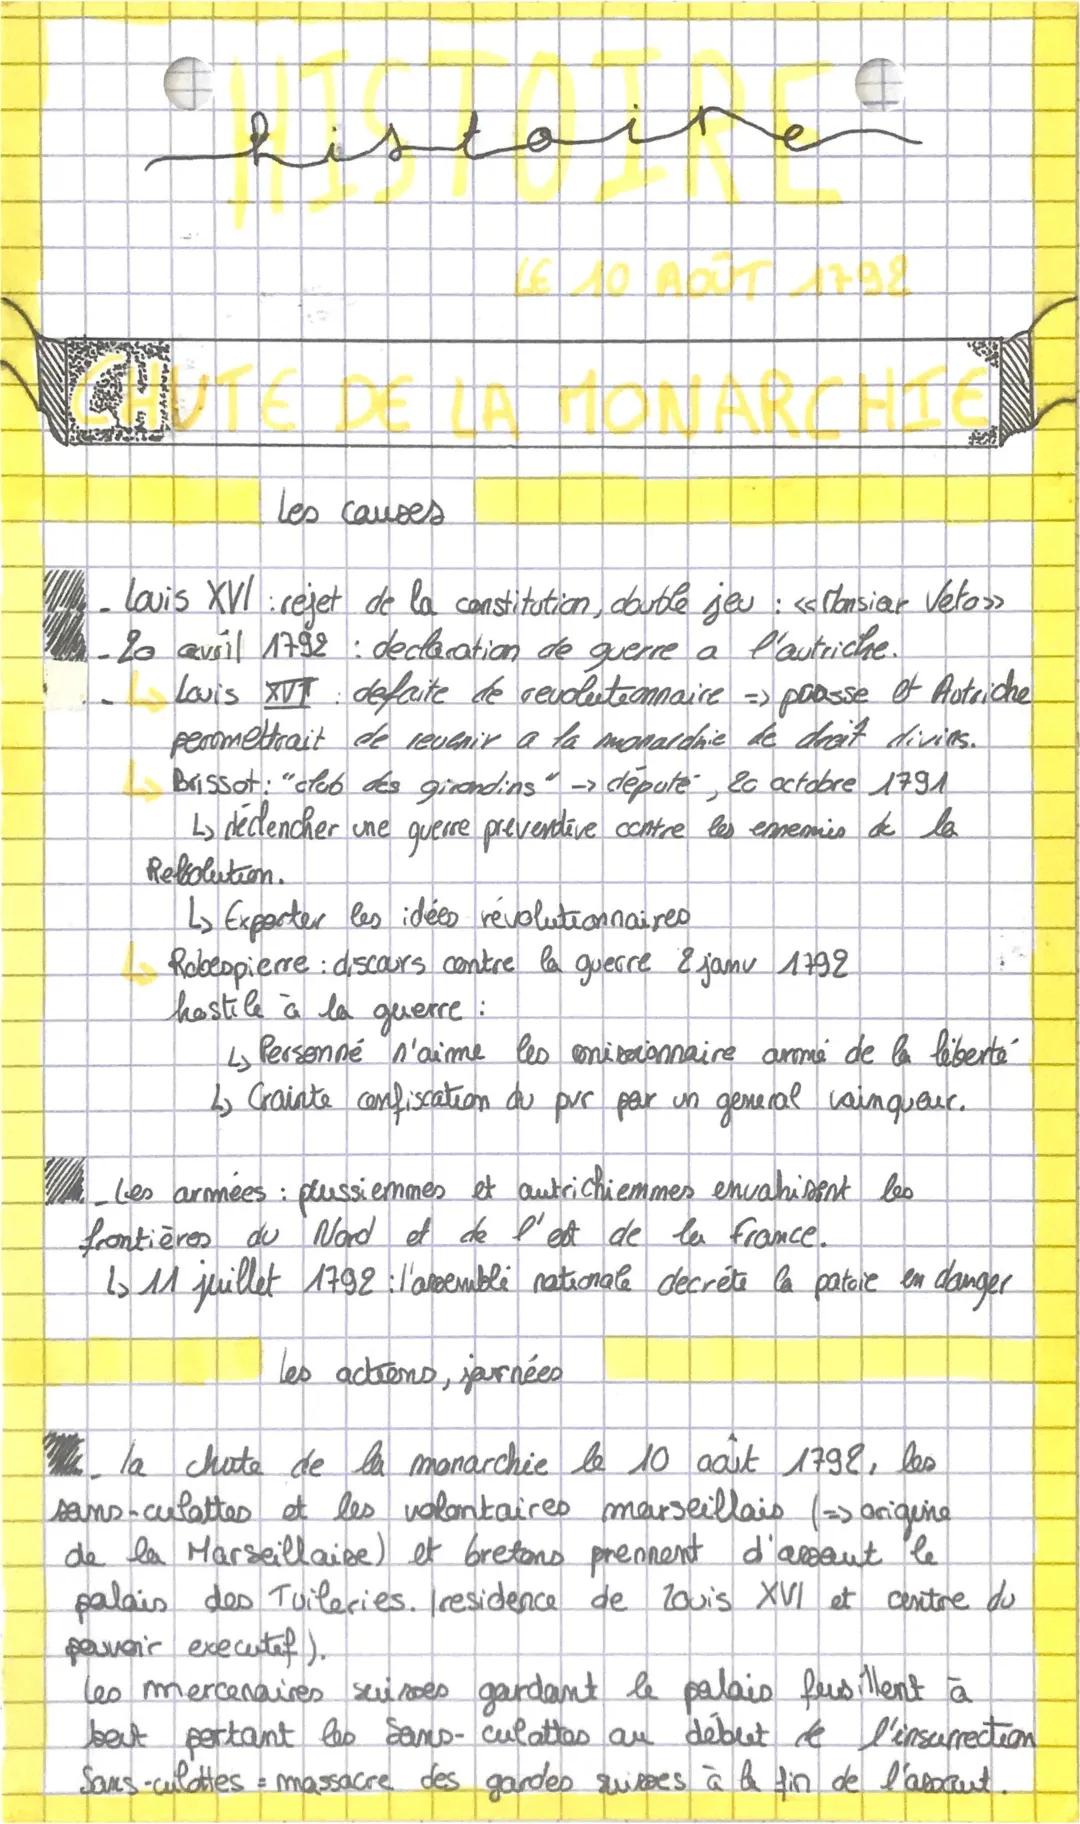 HISTOIRE
histoire
LE 10 AOÛT 1792
CHUTE DE LA MONARCHIE
Les causes
- Louis XVI : rejet de la constitution, double jeu : <<Monsiar Veto>>
- 20 avril 1792 : declaration de guerre a l'autriche.
- ↳ Louis XVI : defaite de revolutionnaire => prusse et Autriche
permettrait de revenir a la monarchie de droit divins.
↳ Brissot : "club des girondins" -> député, 20 octobre 1791
↳ déclencher une guerre preventive contre les ennemis de la
Revolution.
↳ Exporter les idées révolutionnaires
↳ Robespierre : discours contre la guerre 2 janv 1792
hostile à la guerre :
↳ Personné n'aime les missionnaire armé de la liberté
↳ Crainte confiscation du pvr par un general vainqueur.
- Les armées : prussiemmes et autrichiemmes envahissent les
frontières du Nord et de l'est de la France.
↳ 11 juillet 1792 : l'assemblé nationale decréte la patrie en danger
les actions, journées
- la chute de la monarchie le 10 août 1792, les
sans-culottes et les volontaires marseillais (=> origine
de la Marseillaise) et bretons prennent d'assaut le
palais des Tuileries. (residence de Louis XVI et centre du
pouvoir executif).
Les mercenaires suisses gardant le palais fusillent à
bout portant les Sans-culottes au début de l'insurrection
Sans-culottes = massacre des gardes suisses à la fin de l'assaut.